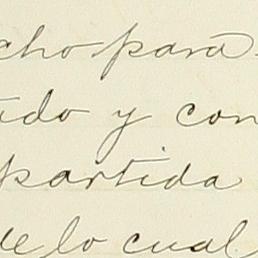 cho para
ido y con
partida
de lo cual